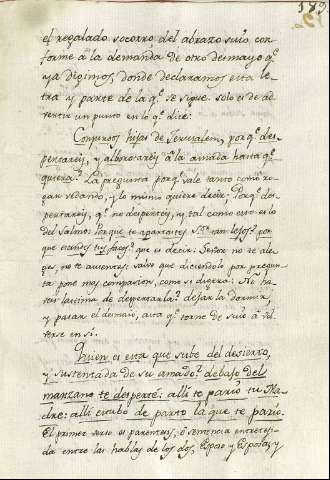 179
el regalado socorro del abrazo suio con-
forme à la demanda de otro desmayo q.^e
ya digimos, donde declaramos esta le-
tra y parte de la q.^e se sigue. Solo es de ad-
vertir un punto en lo q.^e dice:
Conjuroos hijas de Jerusalem, porq.^e des-
pertareis, y alborotareis à la amada hasta q.^e
quiera? La pregunta porq.^e vale tanto como ro-
gar vedando, y lo mismo quiere decir, Porq.^e des-
pertareis, q.^e no desperteis, y tal como esto es lo
del Salmo: Porque te apartaste S.^or tan lejos? por
que escondes tu faces? que es decir. Señor no te ale-
ges, no te ausentes salvo que diciendolo por pregun-
ta pone mas compasion, como si digera: No ha-
ceis lastima de despertarla? dejarla dormir,
y pasar el desmaio, acia q.^e torne de suio à vol-
verse en si.
Quien es esta que sube del desierto,
y sustentada de su amado? debajo del
manzano te desperté: alli te pario tu Ma-
dre: alli estubo de parto la que te pario.
El primer verso es parentesis, ò sentencia entreteji-
da entre las hablas de los dos, Esposo y Esposa, y